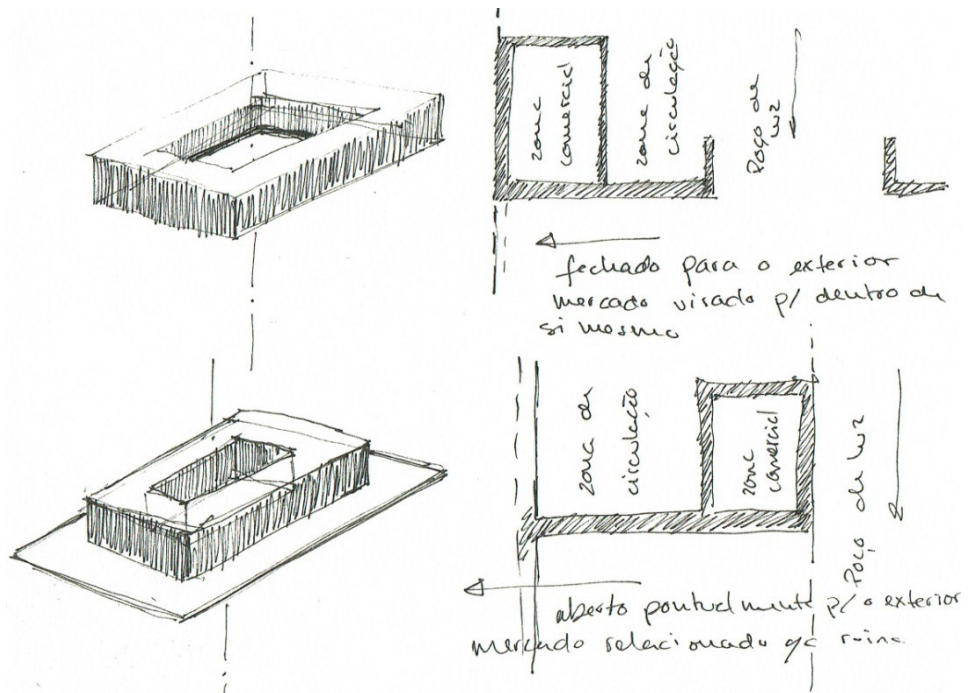 zona
comercial
zona de
circulação
Poço de
luz
fechado para o exterior
mercado virado p/ dentro de
si mesmo
zona de
circulação
zona
comercial
Poço de luz
aberto pontualmente p/ o exterior
mercado relacionado c/a ruina